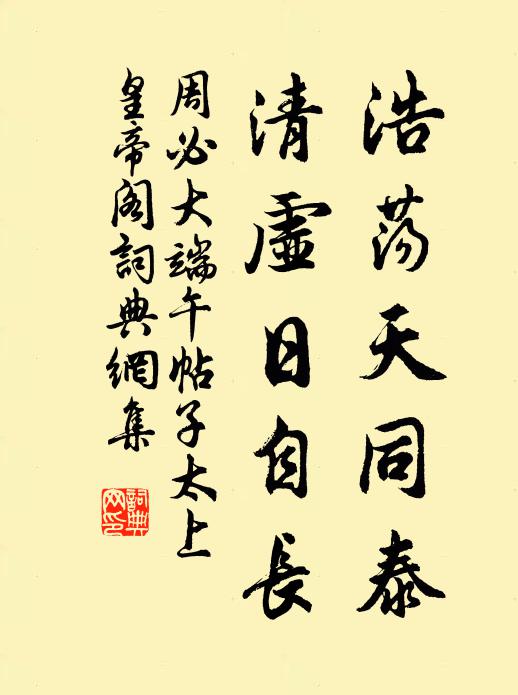 浩荡天同泰
清虛日自長
周必大端午帖子太上
皇帝阁詞典網集
詞典网印